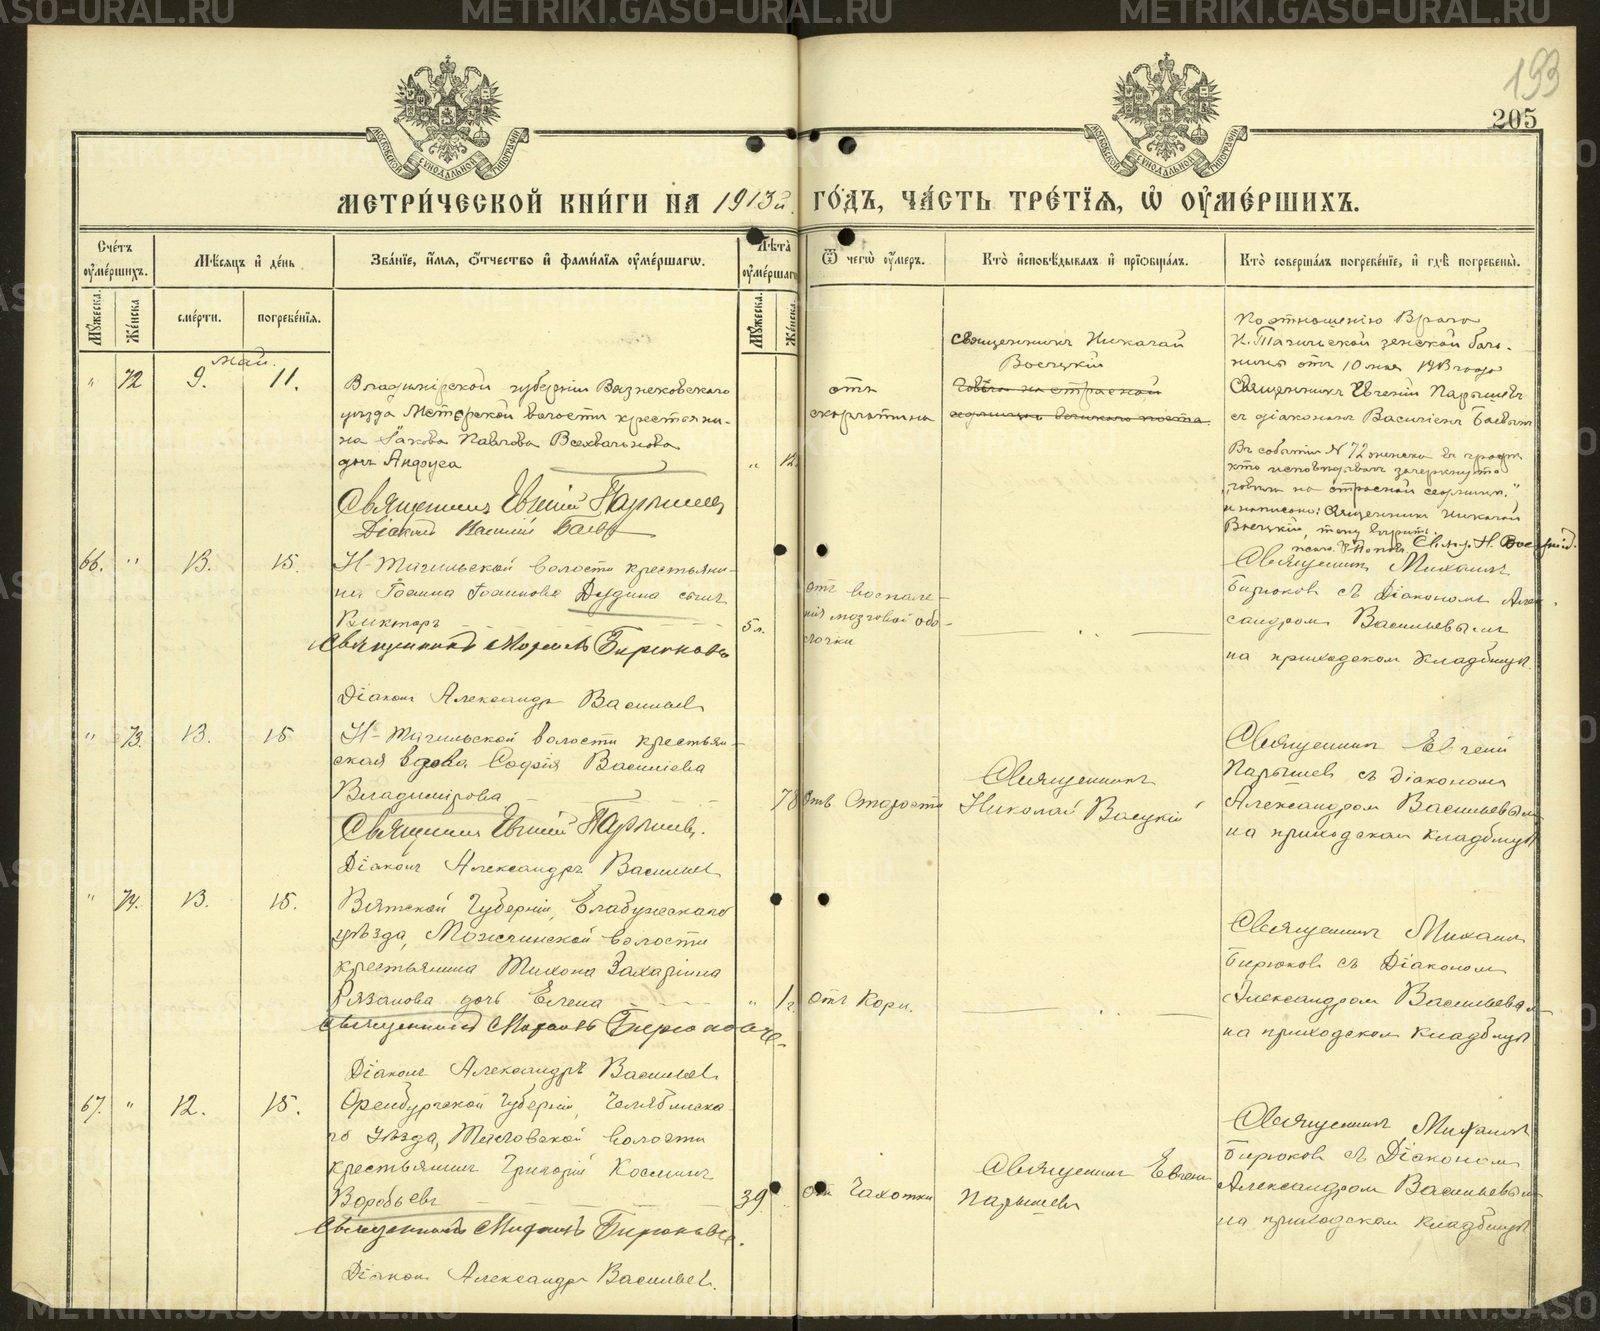 193
205
МОСКОВСКОЙ СѴНОДАЛЬНОЙ ТИПОГРАФІИ
МОСКОВСКОЙ СѴНОДАЛЬНОЙ ТИПОГРАФІИ
МЕТРИ́ЧЕСКОЙ КНИ́ГИ НА 1913й ГО́ДЪ, ЧА́СТЬ ТРЕ́ТІѦ, Ѡ҆ ОУ҆МЕ́РШИХЪ.
Сче́тъ оу҆ме́ршихъ.
Мѣ́сяцъ и҆ де́нь
Зва́нїе, и҆́мѧ, ѻ҆́тчество и҆ фами́лїѧ оу҆ме́ршагѡ.
Лѣ́та оу҆ме́ршагѡ
Ѿ чегѡ̀ оу҆́меръ.
Кто̀ и҆сповѣ́дывалъ и҆ прїѡбща́лъ.
Кто̀ соверша́лъ погребе́нїе, и҆ гдѣ̀ погребены̀.
Мꙋ́жеска.
Же́нска
сме́рти.
погребе́нїѧ.
Мꙋ́жеска.
Же́нска.
Май.
" 72 9. 11.
Владимірской губерніи Вязнековского
уѣзда Мстерской волости крестьяни-
на Іакова Павлова
дочь
" 12
Священникъ Евгеній Парышевъ
Діаконъ Василій Баевъ
отъ
скорлатины
Священникъ Николай
Воецкій
По отношенію Врача
Н. Тагильской земской боль-
ницы отъ 10 мая 1913 года
Священникъ Евгеній Парышевъ
съ діакономъ Василіемъ Баевымъ
Въ событіи № 72 женска въ графѣ
кто исповѣдывалъ зачеркнуто
и написано: Священникъ Николай
Воецкій, тому вѣрить.
66. " 13. 15.
Н-Тагильской волости крестьяни-
на Іоанна Іоаннова Дудина сынъ
Викторъ
5 л.
Священникъ Михаилъ Бирюковъ
Діаконъ Александръ Васильевъ
отъ воспале-
нія мозговой обо-
лочки
Священникъ Михаилъ
Бирюковъ съ Діакономъ Алек-
сандромъ Васильевымъ
на приходскомъ кладбищѣ
" 73. 13. 15
Н-Тагильской волости крестьян-
ская вдова Софія Василіева
Владимірова
78
Священникъ Евгеній Парышевъ.
Діаконъ Александръ Васильевъ
отъ Старости
Священникъ
Николай Воецкій
Священникъ Евгеній
Парышевъ съ діакономъ
Александромъ Васильевымъ
на приходскомъ кладбищѣ
" 74. 13. 15.
Вятской Губерніи, Елабужскаго
уѣзда, Можгинской волости
крестьянина Тихона Захаріина
Рязанова дочь Елена
" 1 г.
Священникъ Михаилъ Бирюковъ
Діаконъ Александръ Васильевъ
отъ Кори.
Священникъ Михаилъ
Бирюковъ съ Діакономъ
Александромъ Васильевымъ
на приходскомъ кладбищѣ
67. " 12. 15.
Оренбургской Губерніи, Челябинска-
го Уѣзда, Тисловской волости
крестьянинъ Григорій Косминъ
Воробьевъ
39
Священникъ Михаилъ Бирюковъ.
Діаконъ Александръ Васильевъ.
отъ Чахотки
Священникъ Евгеній
Парышевъ
Священникъ Михаилъ
Бирюковъ съ Діакономъ
Александромъ Васильевымъ
на приходскомъ кладбищѣ
METRIKI.GASO-URAL.RU